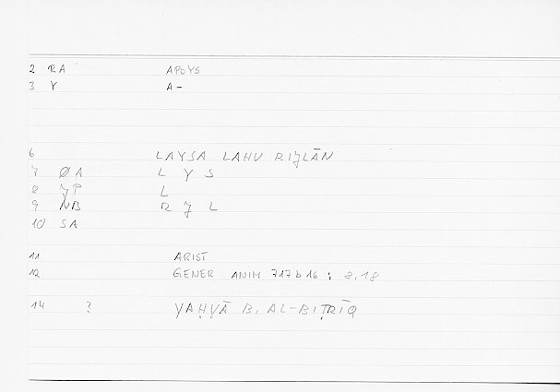 2 RA APOYS
3 Y A-
6 LAYSA LAHU RIǦLĀN
7 ØA L Y S
8 JP L
9 NB R J L
10 SA
11 ARIST
12 GENER ANIM 717b16 : 8,18
14 ? YAḤYĀ B. AL-BIṬRĪQ